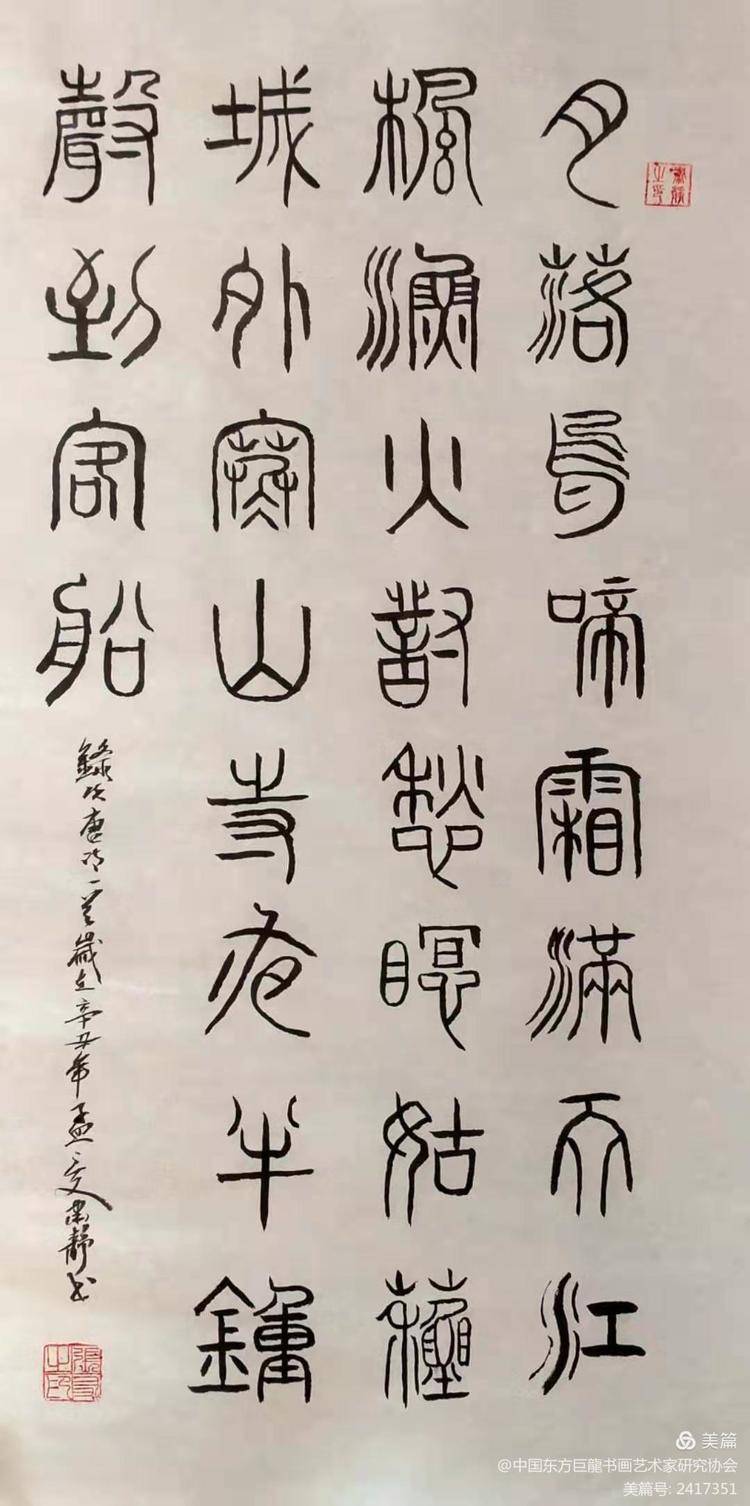 月落烏啼霜滿天江
楓漁火對愁瞑姑蘇
城外寒山寺夜半鍾
聲到客船
錄唐詩一首歲在辛丑年孟夏靜书
美篇
@中国东方巨龍书画艺术家研究协会
美篇号: 2417351